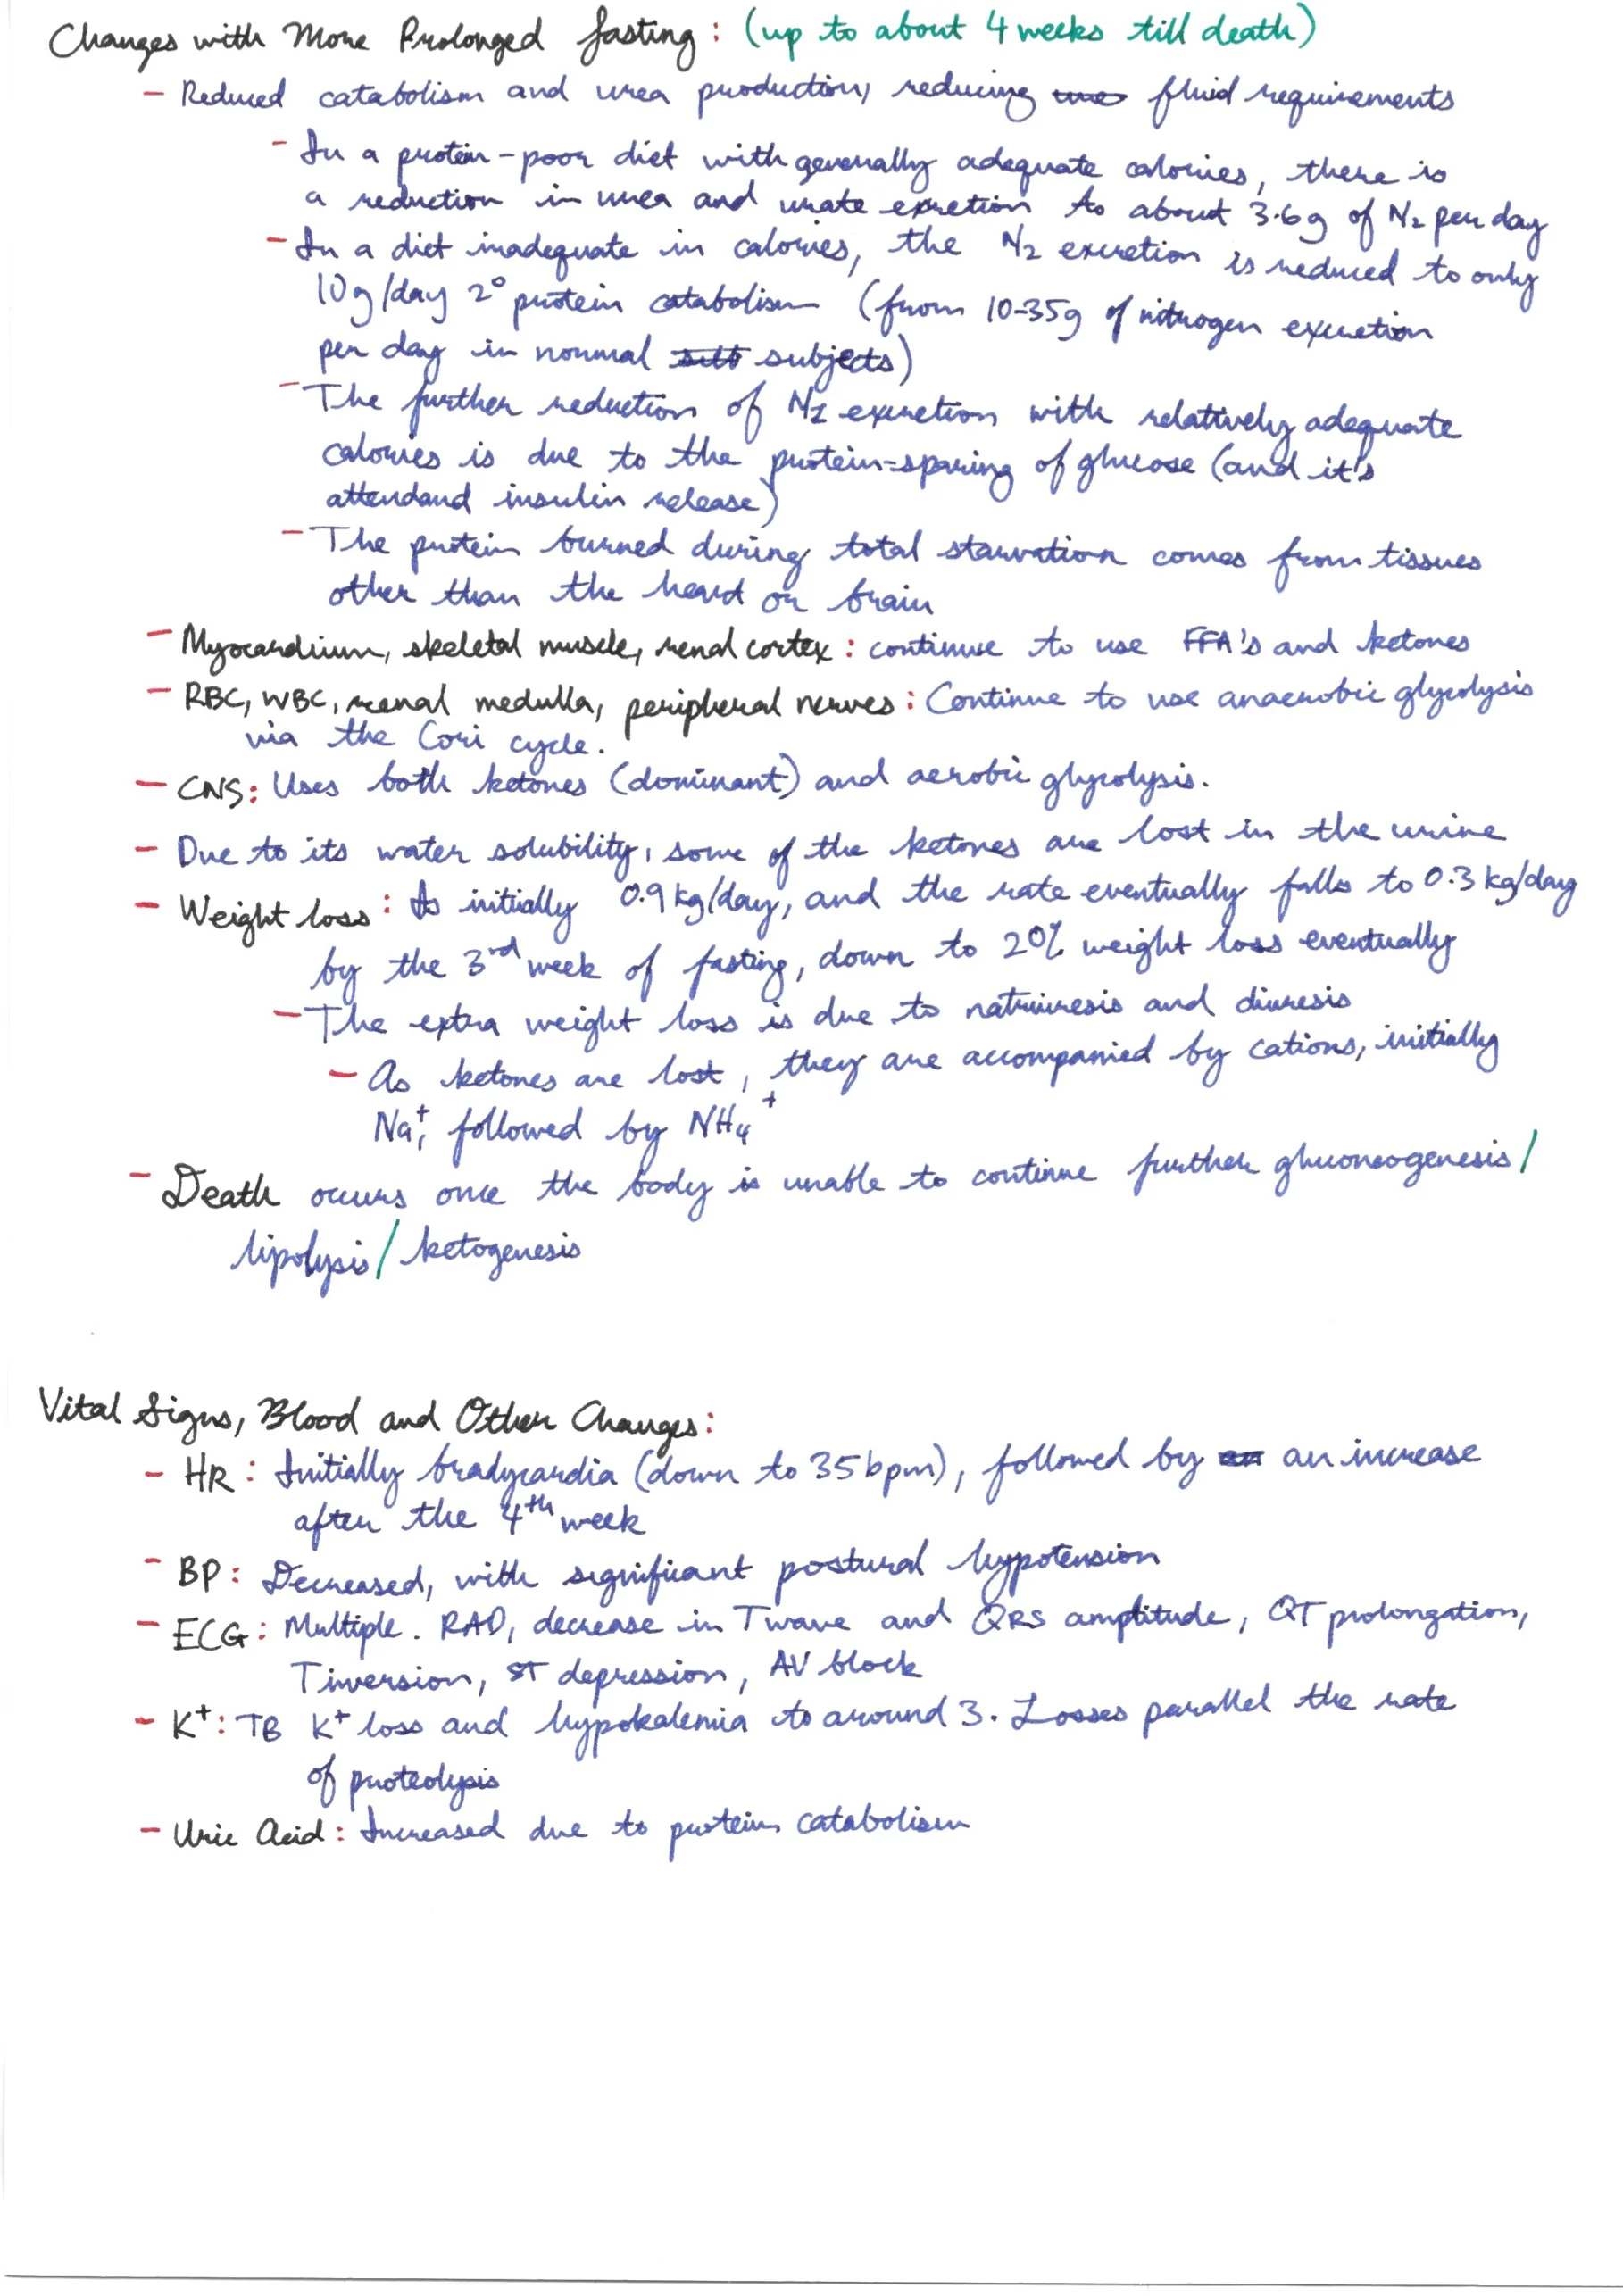 Changes with More Prolonged fasting: (up to about 4 weeks till death)
- Reduced catabolism and urea production, reducing fluid requirements
- In a protein-poor diet with generally adequate calories, there is
a reduction in urea and urate excretion to about 3.6g of N₂ per day
- In a diet inadequate in calories, the N₂ excretion is reduced to only
10g/day 2° protein catabolism (from 10-35g of nitrogen excretion
per day in normal subjects)
- The further reduction of N₂ excretion with relatively adequate
calories is due to the protein-sparing of glucose (and it's
attendand insulin release)
- The protein burned during total starvation comes from tissues
other than the heard or brain
- Myocardium, skeletal muscle, renal cortex: continue to use FFA's and ketones
- RBC, WBC, renal medulla, peripheral nerves: Continue to use anaerobic glycolysis
via the Cori cycle.
- CNS: Uses both ketones (dominant) and aerobic glycolysis.
- Due to its water solubility, some of the ketones are lost in the urine
- Weight loss: Is initially 0.9kg/day, and the rate eventually falls to 0.3kg/day
by the 3rd week of fasting, down to 20% weight loss eventually
- The extra weight loss is due to natriuresis and diuresis
- As ketones are lost, they are accompanied by cations, initially
Na⁺, followed by NH₄⁺
- Death occurs once the body is unable to continue further gluconeogenesis/
lipolysis/ketogenesis
Vital Signs, Blood and Other Changes:
- HR: Initially bradycardia (down to 35bpm), followed by an increase
after the 4th week
- BP: Decreased, with significant postural hypotension
- ECG: Multiple. RAD, decrease in T wave and QRS amplitude, QT prolongation,
T inversion, ST depression, AV block
- K⁺: TB K⁺ loss and hypokalemia to around 3. Losses parallel the rate
of proteolysis
- Uric Acid: Increased due to protein catabolism